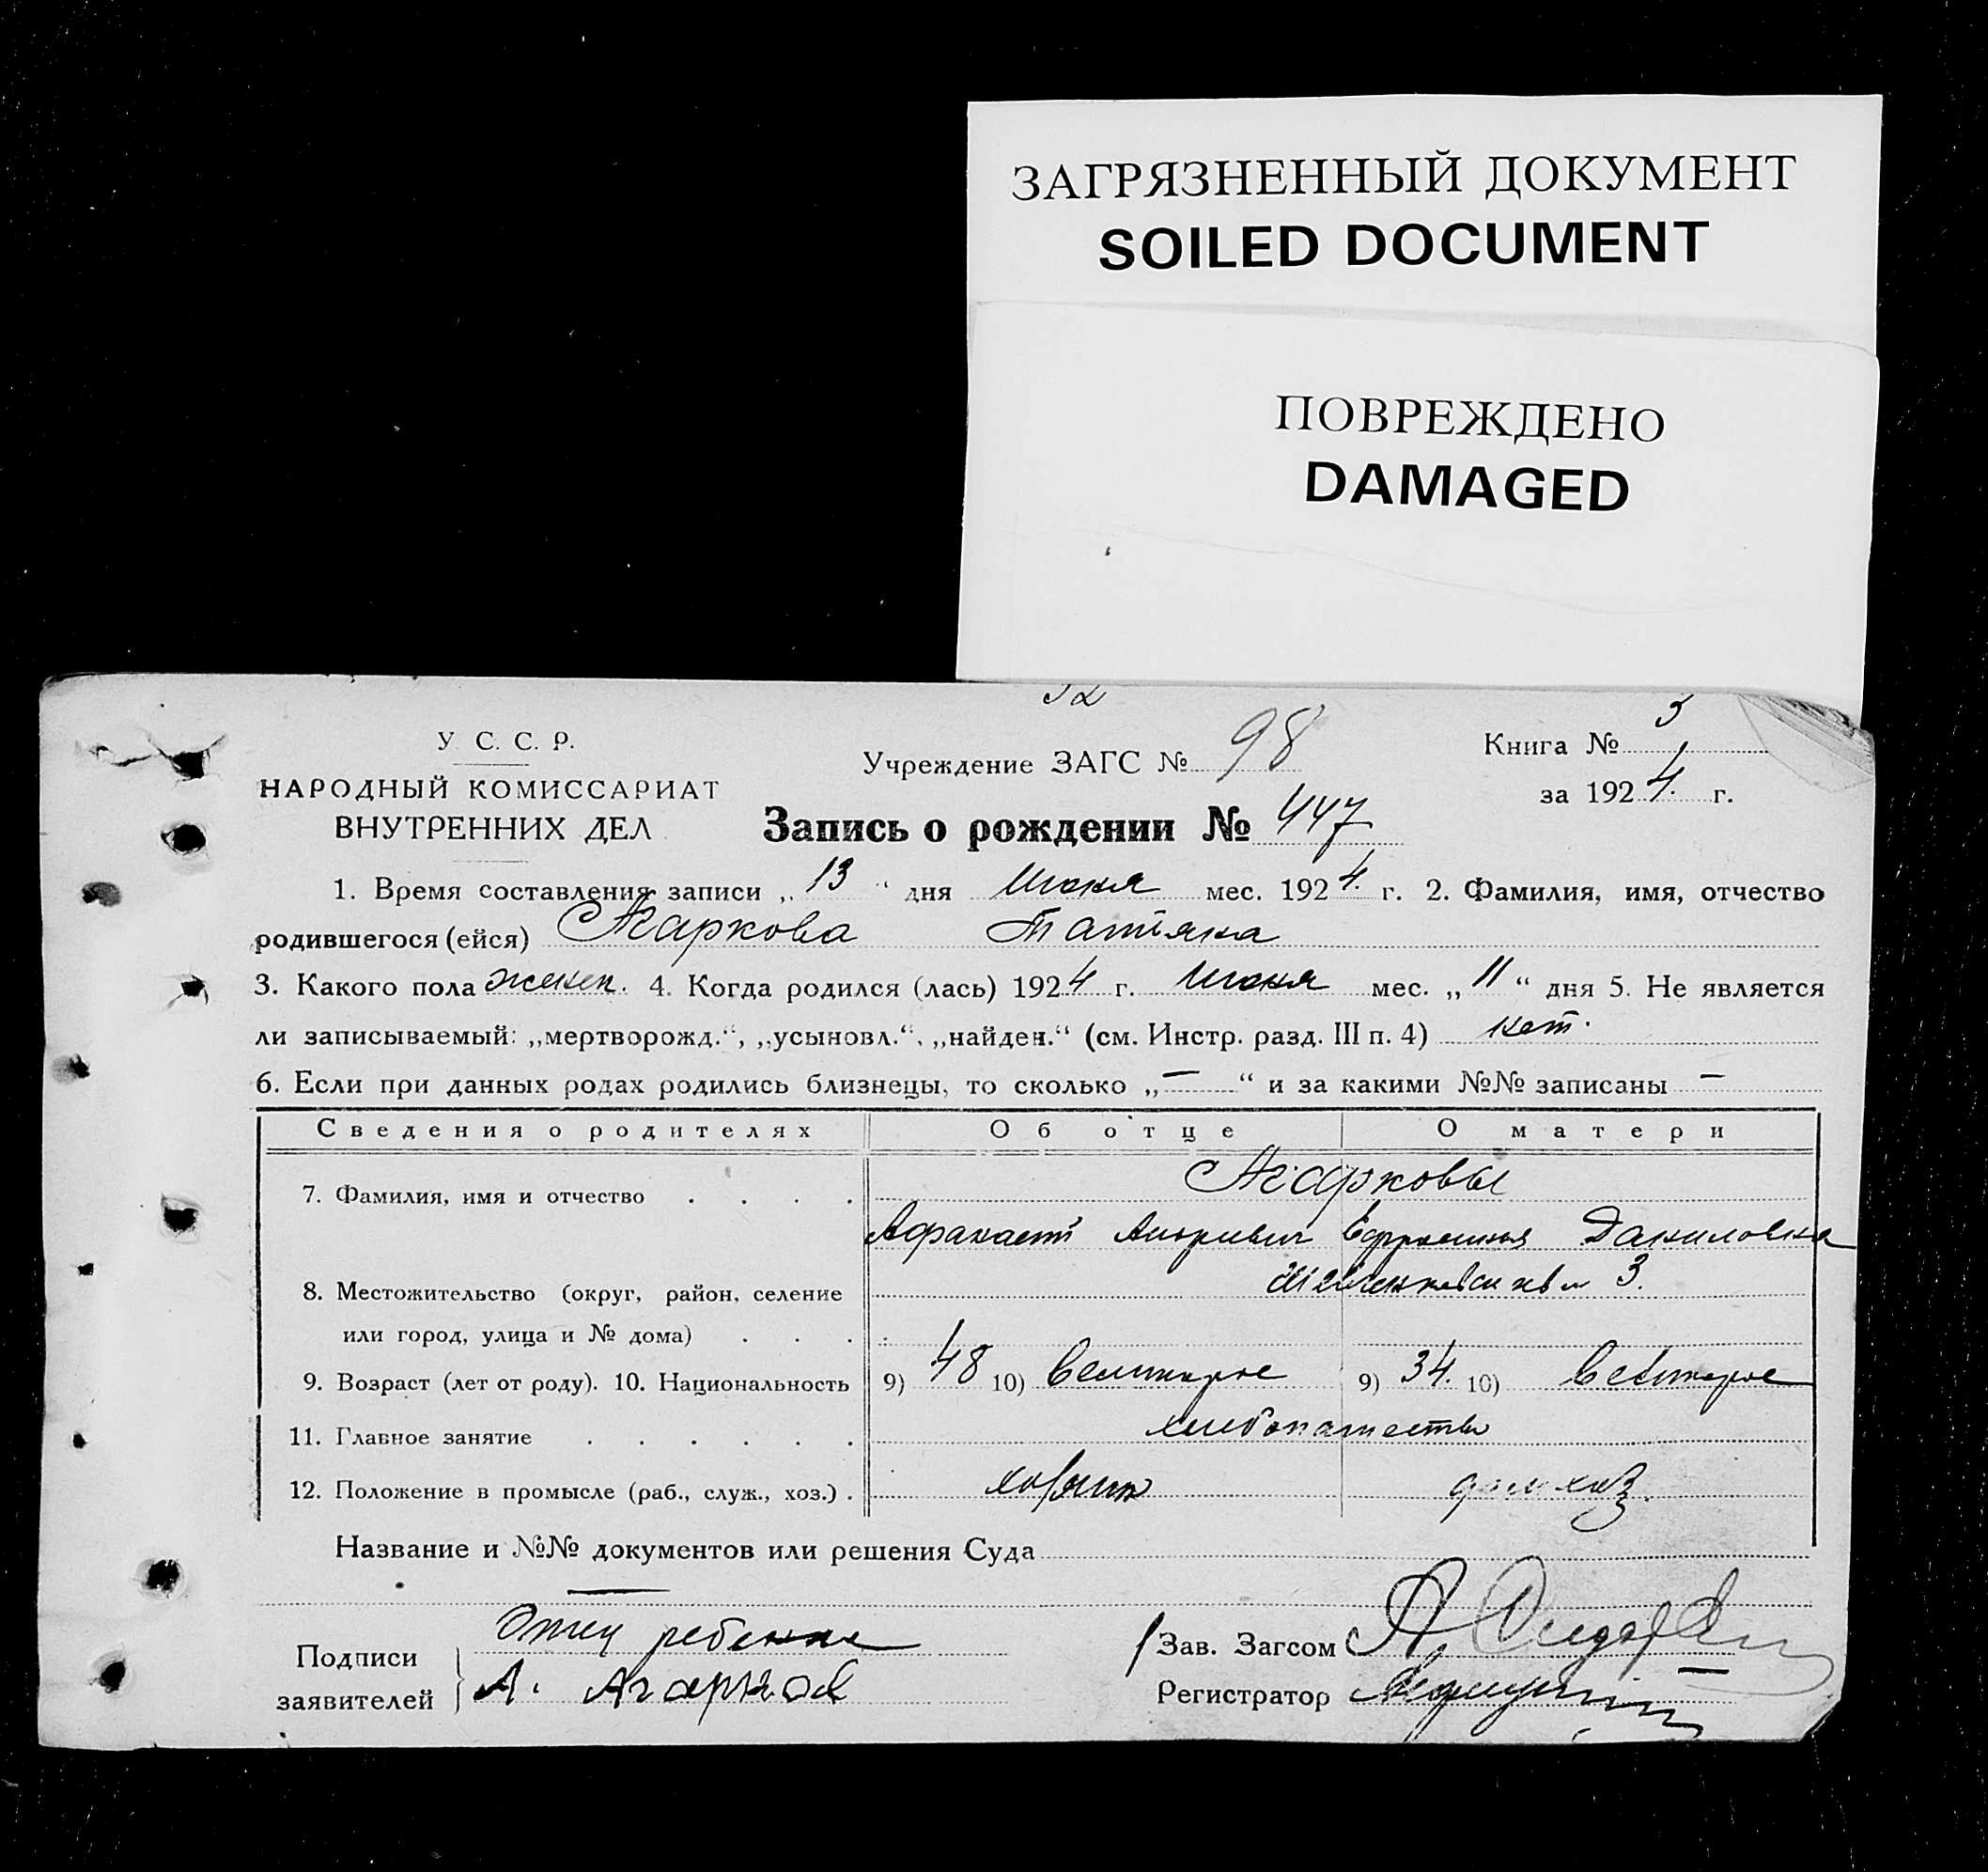 ЗАГРЯЗНЕННЫЙ ДОКУМЕНТ
SOILED DOCUMENT
ПОВРЕЖДЕНО
DAMAGED
У. С. С. Р.
НАРОДНЫЙ КОМИССАРИАТ
ВНУТРЕННИХ ДЕЛ
Учреждение ЗАГС № 98
Книга № 3
за 1924. г.
Запись о рождении № 447
1. Время составления записи „13“ дня Июня мес. 1924. г. 2. Фамилия, имя, отчество
родившегося (ейся) Агаркова Татьяна
3. Какого пола женск. 4. Когда родился (лась) 1924 г. Июня мес. „11“ дня 5. Не является
ли записываемый: „мертворожд.“, „усыновл.“, „найден.“ (см. Инстр. разд. III п. 4) нет.
6. Если при данных родах родились близнецы, то сколько „—“ и за какими №№ записаны —
Сведения о родителях Об отце О матери
7. Фамилия, имя и отчество . . . . Агарковы
Ефросинья Даниловна
8. Местожительство (округ, район, селение 3.
или город, улица и № дома) . . .
9. Возраст (лет от роду). 10. Национальность 9) 48 10) Великорос 9) 34. 10) Великорос
11. Главное занятие . . . . . . хлебопашество
12. Положение в промысле (раб., служ., хоз.) . хозяин дом хоз.
Название и №№ документов или решения Суда
Отец ребенка
Подписи
заявителей А. Агарков
Зав. Загсом
Регистратор